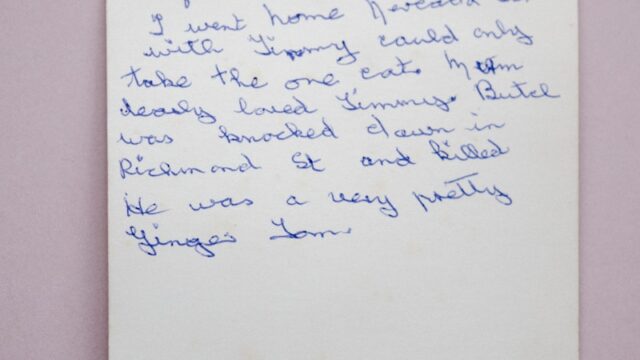 I went home
with Timmy could only
take the one cat. Mum
dearly loved Timmy. Butch
was knocked down in
Richmond St and killed
He was a very pretty
Ginger Tom.